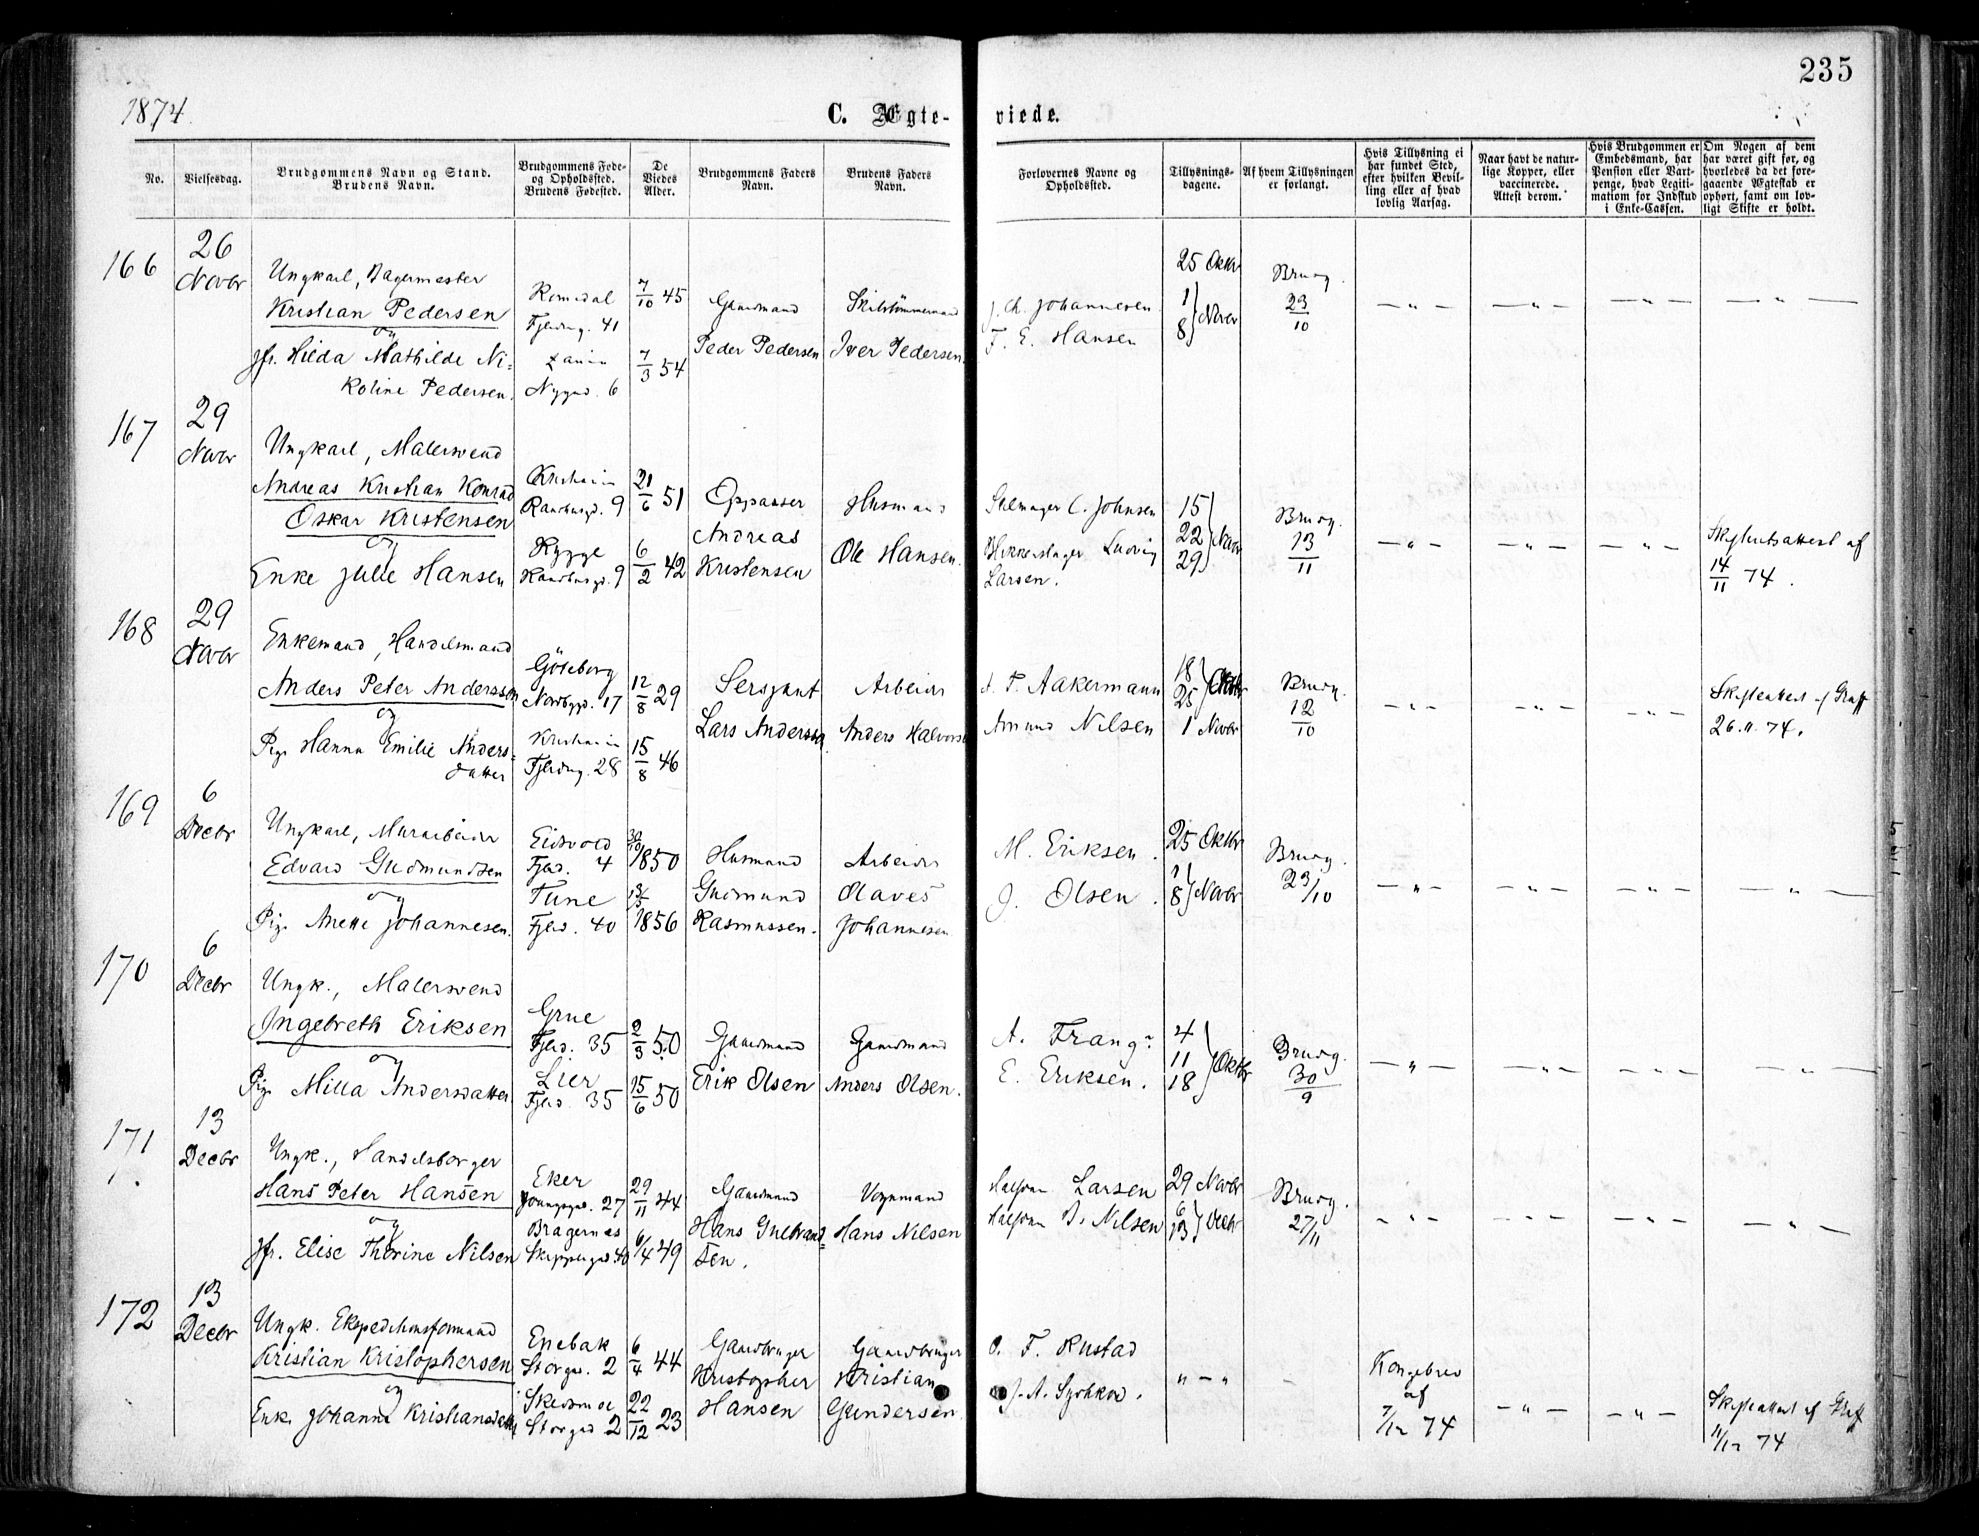 235
1874
C. Ægte-
viede.
No.
Vielsesdag.
Brudgommens Navn og Stand.
Brudens Navn.
Brudgommens Føde-
og Opholdssted.
Brudens Fødested.
De
Viedes
Alder.
Brudgommens Faders
Navn.
Brudens Faders
Navn.
Forlovernes Navne og
Opholdssted.
Tillysnings-
dagene.
Af hvem Tillysningen
er forlangt.
Hvis Tillysning ei
har fundet Sted,
efter hvilken Bevil-
ling eller af hvad
lovlig Aarsag.
Naar havt de natur-
lige Kopper, eller
vaccinerede.
Attest derom.
Hvis Brudgommen er
Embedsmand, har
Pension eller Vart-
penge, hvad Legiti-
mation for Indskud
i Enke-Cassen.
Om Nogen af dem
har været gift før, og
hvorledes da det fore-
gaaende Ægteskab er
ophørt, samt om lov-
ligt Skifte er holdt.
166
26
Novbr
Ungkarl, Bagermester
Kristian Pedersen
og
Jfr. Hilda Mathilde Ni=
koline Pedersen.
Romedal
Fjerding. 41
Nygad. 6
7/10 45
7/3 54
Gaardmand
Peder Pedersen
Skibstømmermand
Iver Pedersen.
J. Ch. Johannesen
F. E. Hansen
25 Oktbr
1
8 } Novbr
Brudg.
23/10
— " —
— " —
— " —
— " —
167
29
Novbr
Ungkarl, Malersvend
Andreas Kristian Konrad
Oskar Kristensen
og
Enke Julie Hansen
Kristiania
Randbergd. 9
Rygge
Randbergd. 9
21/6 51
6/2 42
Oppasser
Andreas
Kristensen
Husmand
Ole Hansen.
Selmager C. Johnsen
Blikkenslager Ludvig
Larsen.
15
22
29 } Novbr
Brudg.
13/11
— " —
— " —
— " —
Skifteattest af
14/11 74.
168
29
Novbr
Enkemand, Handelsmand
Anders Peter Andersson
og
Pige Hanna Emilie Anders=
datter
Göteborg
Norbygd. 17
Kristiania
Fjerding. 28
12/8 29
15/8 46
Sersjant
Lars Andersson
Arbeider
Anders Halvorsen
P. Aakermann
Amund Nilsen
18
25 } Oktbr
1 Novbr
Brudg.
12/10
— " —
— " —
— " —
Skifteattest af Graff
26.11.74.
169
6
Decbr
Ungkarl, Murarbeider
Edvard Gudmundsen
og
Pige Anette Johannesen.
Eidsvold
Fjerd. 4
Tune
Fjerd. 40
30/10 1850
1856
Husmand
Gudmund
Rasmussen.
Arbeider
Olaves
Johannesen
M. Eriksen.
J. Olsen.
25 Oktbr
1
8 } Novbr
Brudg.
23/10
— " —
— " —
— " —
— " —
170
6
Decbr
Ungk., Malersvend
Ingebreth Eriksen
og
Pige Milla Andersdatter
Grue
Fjerd. 35
Lier
Fjerd. 35
2/3 50
15/6 50
Gaardmand
Erik Olsen
Gaardmand
Anders Olsen.
A. Frang.
E. Eriksen.
4
11
18 } Oktbr
Brudg.
30/9
— " —
— " —
— " —
— " —
171
13
Decbr
Ungk., Handelsborger
Hans Peter Hansen
og
Jfr. Elise Thorine Nilsen
Eker
Youngsgad. 27
Bragernes
Skippergad. 40
29/11 44
6/4 49
Gaardmand
Hans Gulbrand=
sen.
Vognmand
Hans Nilsen
Larsen
Nilsen
29 Novbr
6
13 } Decbr
Brudg.
27/11
— " —
— " —
— " —
— " —
172
13
Decbr
Ungk. Ekspeditionsformand
Kristian Kristophersen
og
Enke Johanne Kristiansdatter
Enebak
Storgad. 2
Skedsmoe
Storgad 2
6/4 44
22/12 23
Gaardbruger
Kristopher
Hansen
Gaardbruger
Kristian
Gundersen.
O. F. Rustad
" — "
—
Kongebrev
af
7/12 74
— " —
— " —
Skifteattest af Graff
11/12 74